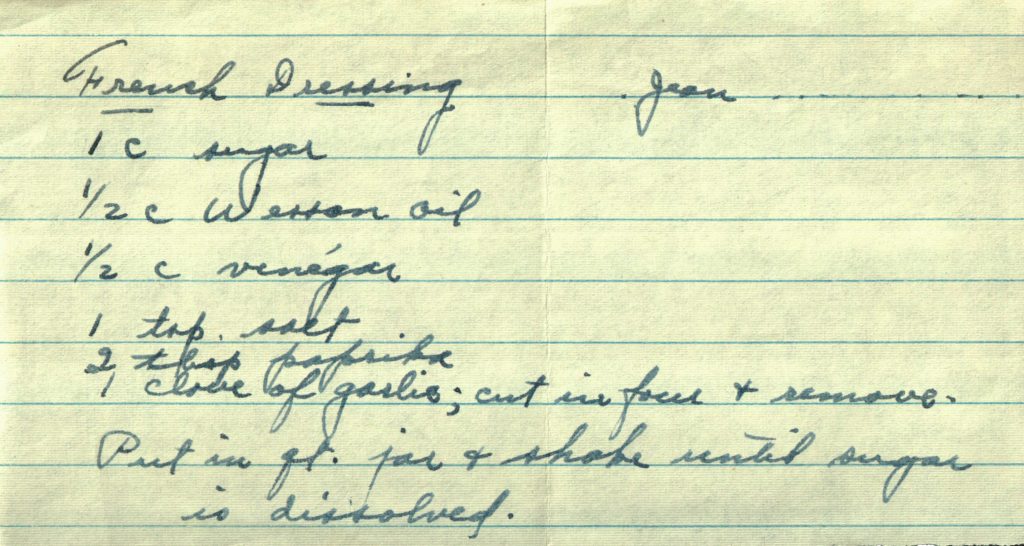 French Dressing . Jean ..........
1 c sugar
1/2 c Wesson oil
1/2 c venégar
1 tsp. salt
2 tbsp paprika
1 clove of garlic; cut in four + remove.
Put in qt. jar + shake until sugar
is dissolved.